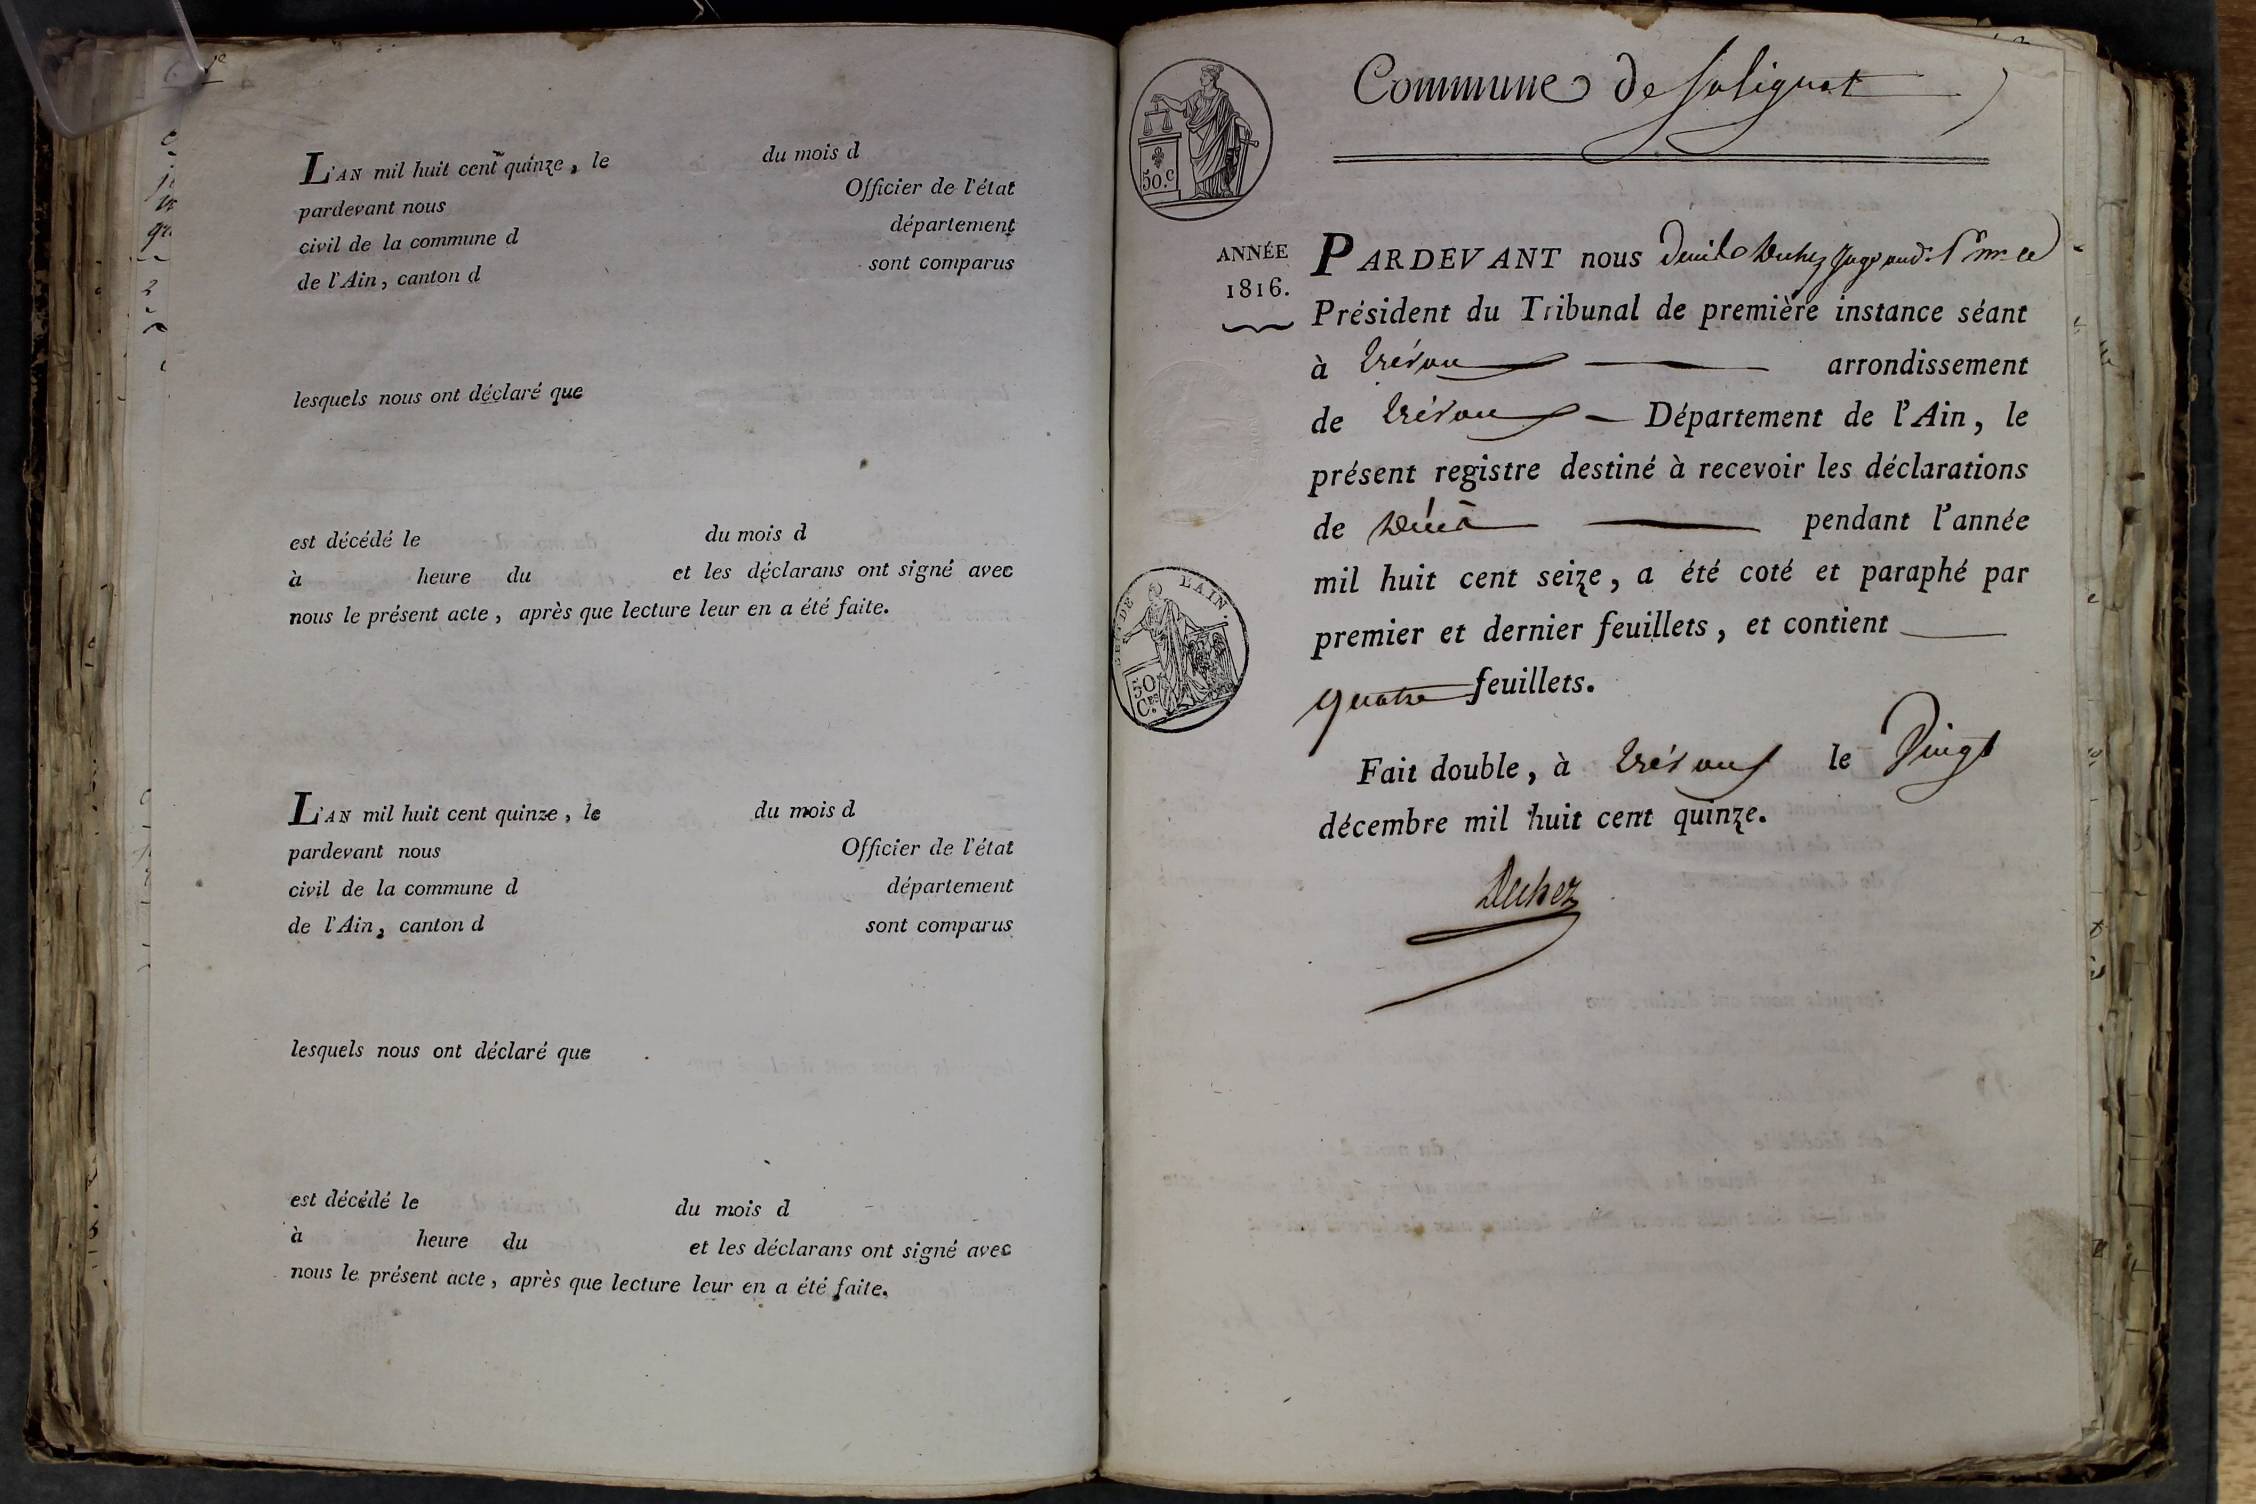 L'AN mil huit cent quinze, le du mois d
pardevant nous Officier de l'état
civil de la commune d département
de l'Ain, canton d sont comparus
lesquels nous ont déclaré que
est décédé le du mois d
à heure du et les déclarans ont signé avec
nous le présent acte, après que lecture leur en a été faite.
L'AN mil huit cent quinze, le du mois d
pardevant nous Officier de l'état
civil de la commune d département
de l'Ain, canton d sont comparus
lesquels nous ont déclaré que
est décédé le du mois d
à heure du et les déclarans ont signé avec
nous le présent acte, après que lecture leur en a été faite.
Commune de Salignat
50.c
ANNÉE
1816.
PARDEVANT nous Duchez Juge
Président du Tribunal de première instance séant
à Trévoux arrondissement
de Trévoux Département de l'Ain, le
présent registre destiné à recevoir les déclarations
de Décès pendant l'année
mil huit cent seize, a été coté et paraphé par
premier et dernier feuillets, et contient
quatre feuillets.
DE L'AIN.
50
Ces
Fait double, à Trévoux le Vingt
décembre mil huit cent quinze.
Duchez